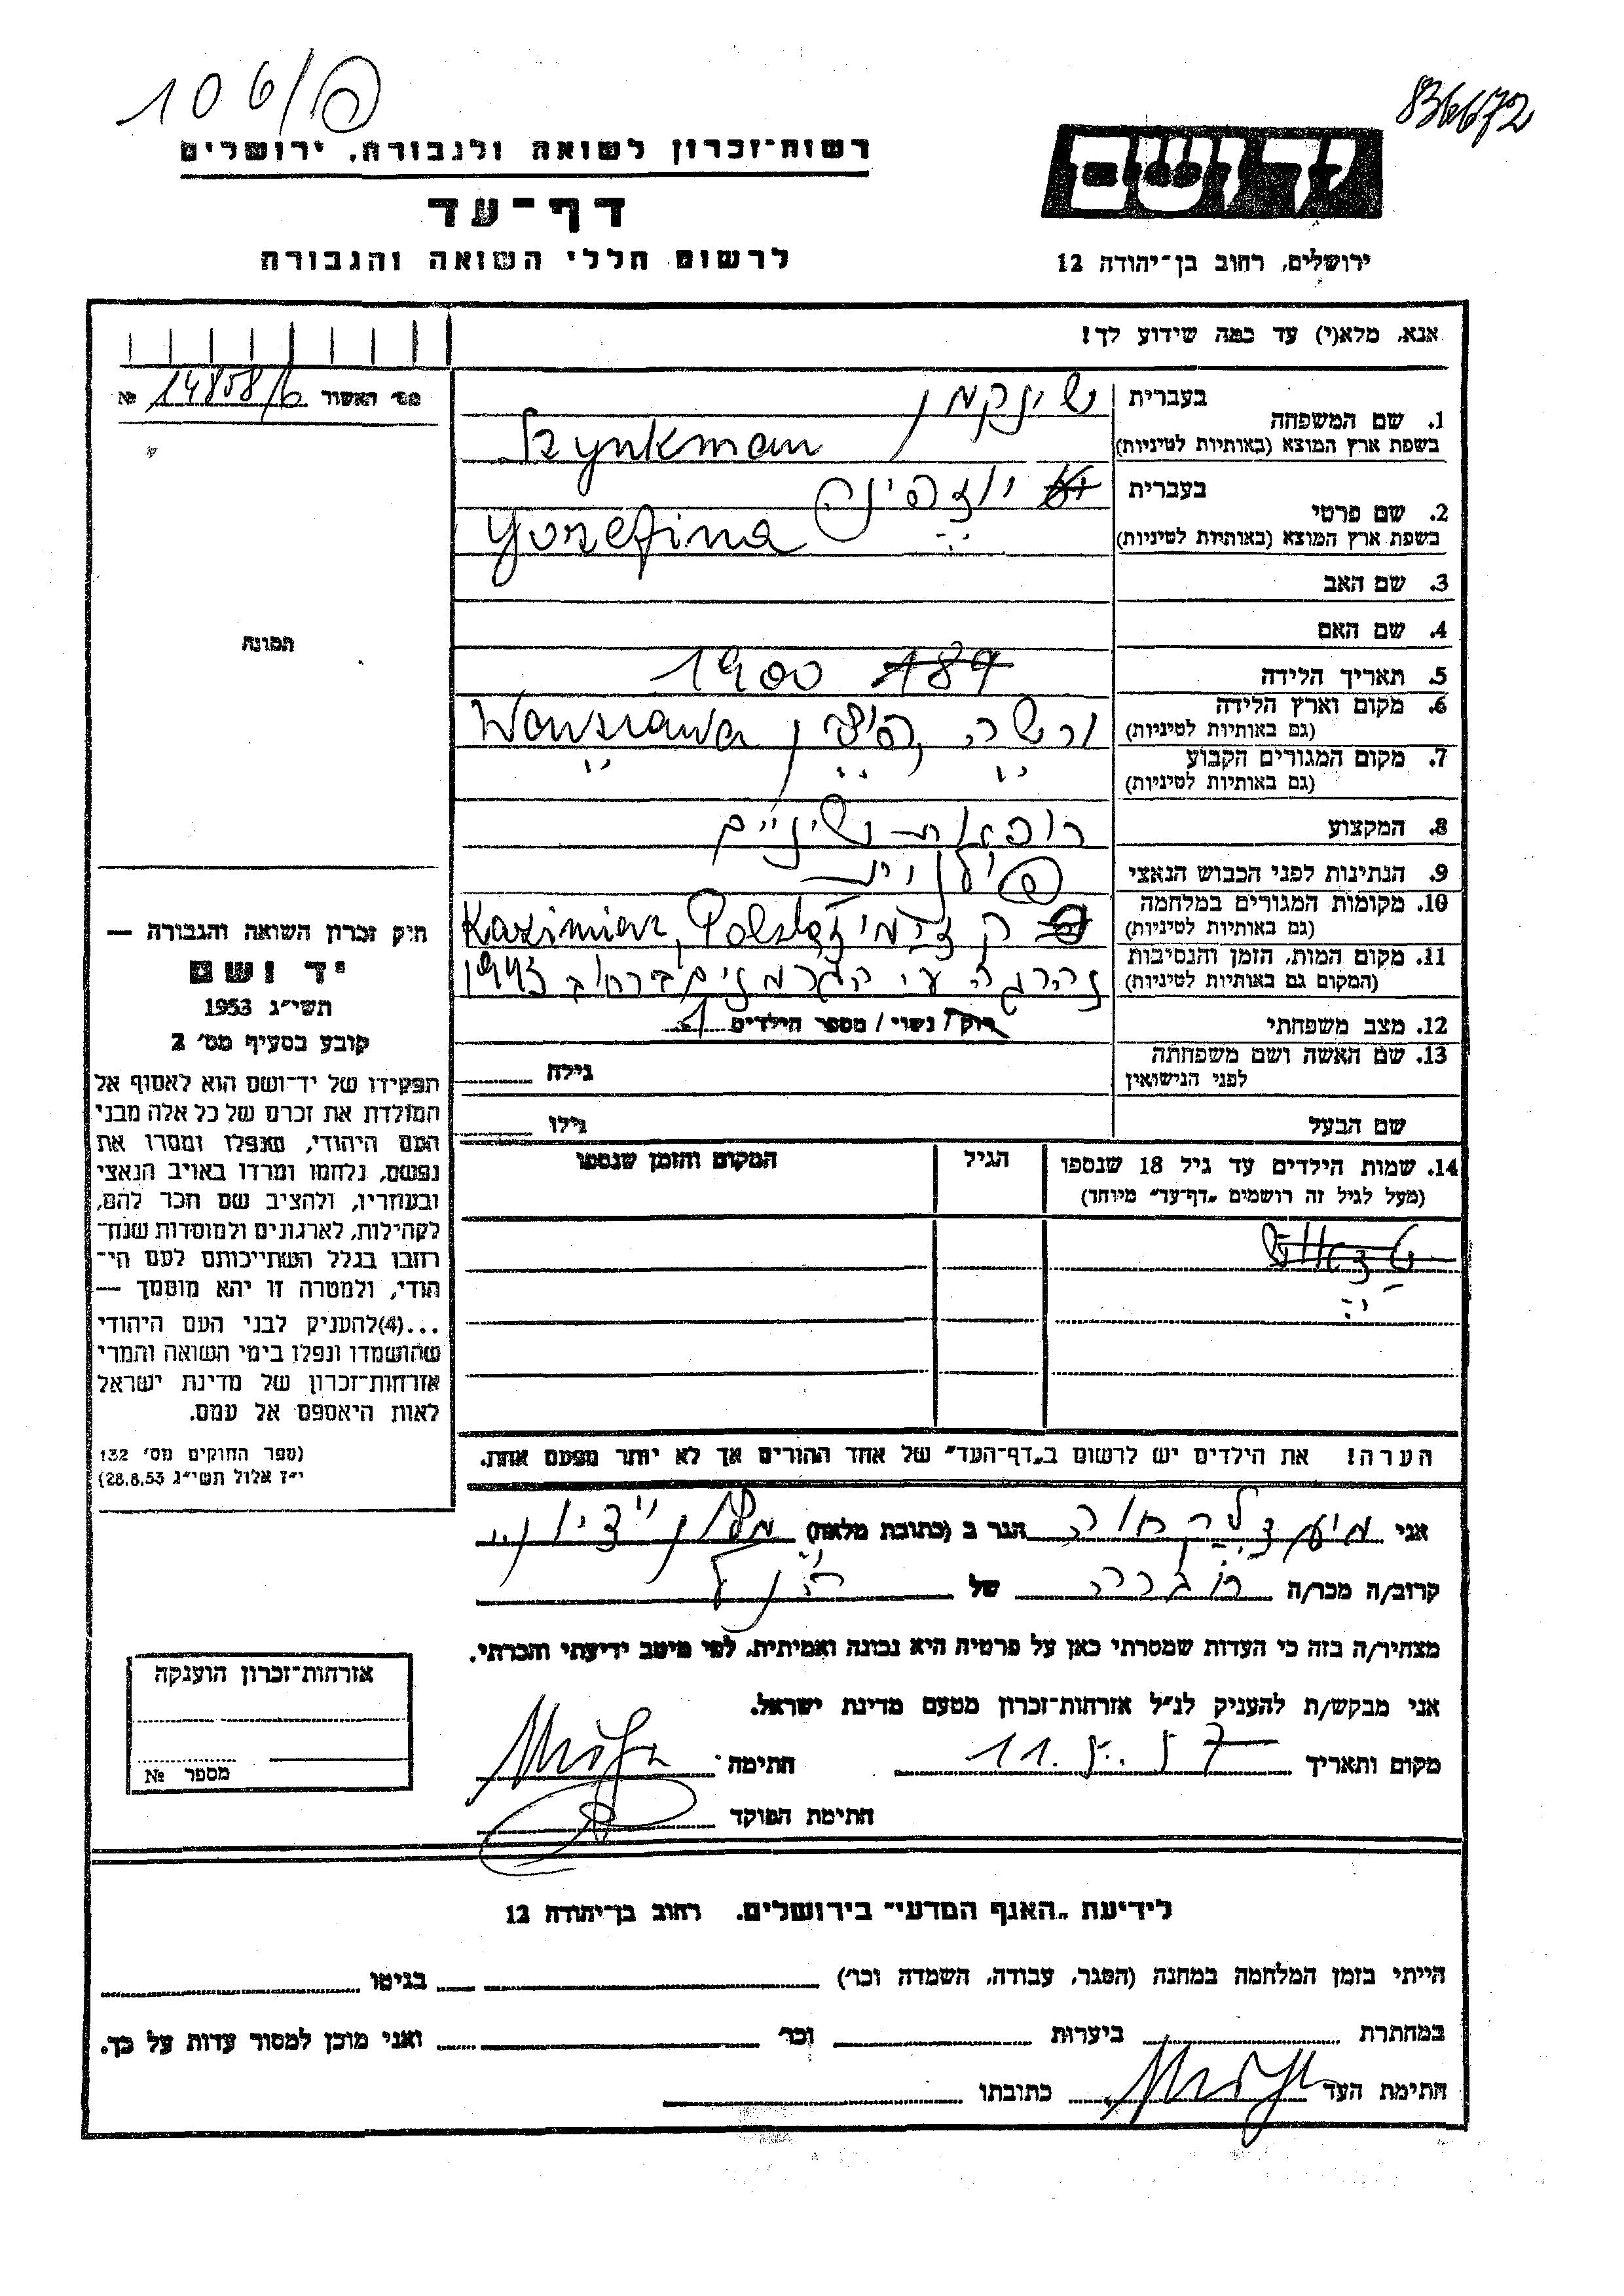 106/פ
836672
רשות־זכרון לשואה ולגבורה, ירושלים
ידושם
דף־עד
לרשום חללי השואה והגבורה
ירושלים, רחוב בן־יהודה 12
אנא, מלא(י) עד כמה שידוע לך!
מס׳ האשור 14858/6 №
1. שם המשפחה
בעברית שינקמן
בשפת ארץ המוצא (באותיות לטיניות) Szynkman
2. שם פרטי
בעברית יוזפינה
בשפת ארץ המוצא (באותיות לטיניות) Yuzefina
3. שם האב
4. שם האם
תמונה
5. תאריך הלידה 189 1900
6. מקום וארץ הלידה
(גם באותיות לטיניות) ורשה, פולין Warszawa
7. מקום המגורים הקבוע
(גם באותיות לטיניות) " " "
8. המקצוע רופאת שיניים
9. הנתינות לפני הכבוש הנאצי פולנית
10. מקומות המגורים במלחמה
(גם באותיות לטיניות) Kazimierz, Polska
11. מקום המות, הזמן והנסיבות
(המקום גם באותיות לטיניות) נהרגה ע״י הגרמנים ברחוב 1943
12. מצב משפחתי רוק / נשוי / מספר הילדים 1
13. שם האשה ושם משפחתה
לפני הנישואין
גילה
שם הבעל גילו
14. שמות הילדים עד גיל 18 שנספו
(מעל לגיל זה רושמים „דף־עד״ מיוחד)
הגיל
המקום והזמן שנספו
חיק זכרון השואה והגבורה —
יד ושם
תשי״ג 1953
קובע בסעיף מס׳ 2
תפקידו של יד־ושם הוא לאסוף אל
המולדת את זכרם של כל אלה מבני
העם היהודי, שנפלו ומסרו את
נפשם, נלחמו ומרדו באויב הנאצי
ובעוזריו, ולהציב שם וזכר להם,
לקהילות, לארגונים ולמוסדות שנח־
רחבו בגלל השתייכותם לעם הי־
הודי, ולמטרה זו יהא מוסמך —
...(4)להעניק לבני העם היהודי
שהושמדו ונפלו בימי השואה והמרי
אזרחות־זכרון של מדינת ישראל
לאות היאספם אל עמם.
(ספר החוקים מס׳ 132
י״ז אלול תשי״ג 28.8.53)
הערה! את הילדים יש לרשום ב„דף־העד״ של אחד ההורים אך לא יותר מפעם אחת.
אני הגר ב (כתובת מלאה)
קרוב/ה מכר/ה של הנ״ל
מצהיר/ה בזה כי העדות שמסרתי כאן על פרטיה היא נכונה ואמיתית, לפי מיטב ידיעתי והכרתי.
אני מבקש/ת להעניק לנ״ל אזרחות־זכרון מטעם מדינת ישראל.
מקום ותאריך 11.5.57 חתימה
חתימת הפוקד
אזרחות־זכרון הוענקה
מספר №
לידיעת „האגף המדעי״ בירושלים. רחוב בן־יהודה 12
הייתי בזמן המלחמה במחנה (הסגר, עבודה, השמדה וכו׳) בגיטו
במחתרת ביערות וכו׳ ואני מוכן למסור עדות על כך.
חתימת העד כתובתו